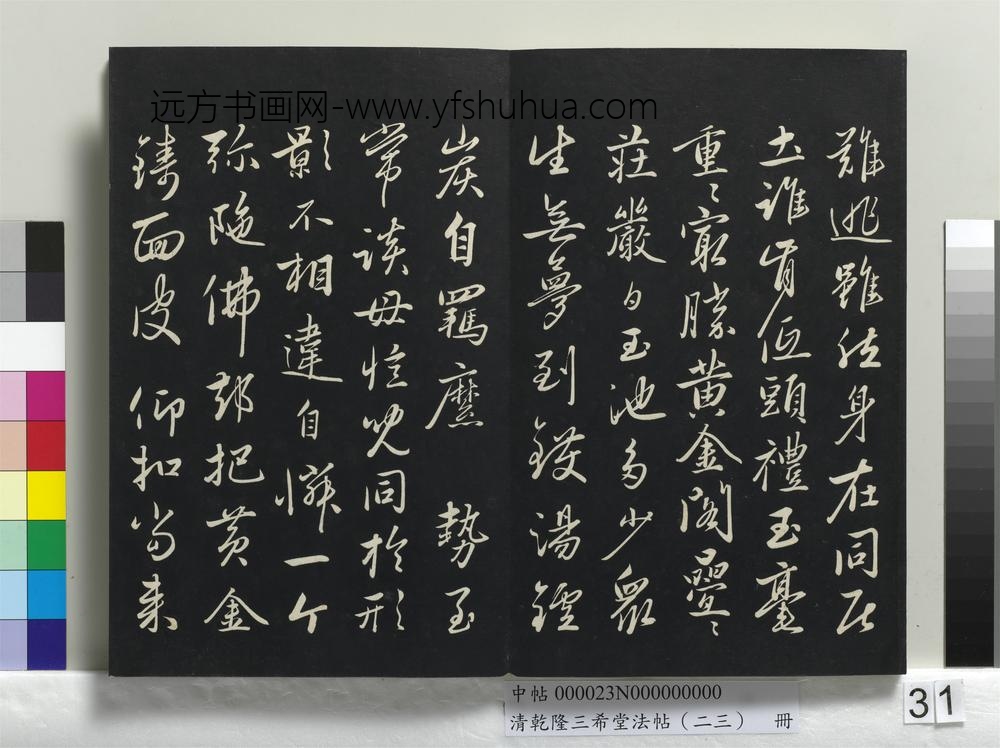 远方书画网-www.yfshuhua.com
難逃雖然身在同居
土誰肯低頭禮玉毫
重〻最勝黃金閣疊〻
莊嚴白玉池多少眾
生無夢到鑊湯鑪
炭自羈縻 勢至
常談母憶兒同於形
影不相違自憐一个
弥陀佛却把黃金
鑄面皮 仰扣當來
中帖 000023N000000000
清乾隆三希堂法帖（二三） 冊
31